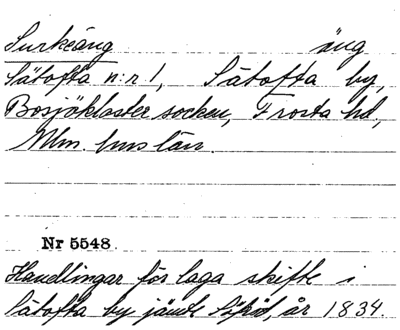 Surkeäng äng
Sätofta n:r 1, Sätofta by,
Bosjökloster socken, Frosta hd,
Mlm. hus län.
Nr 5548
Handlingar för laga skifte i
Sätofta by jämte år 1834.